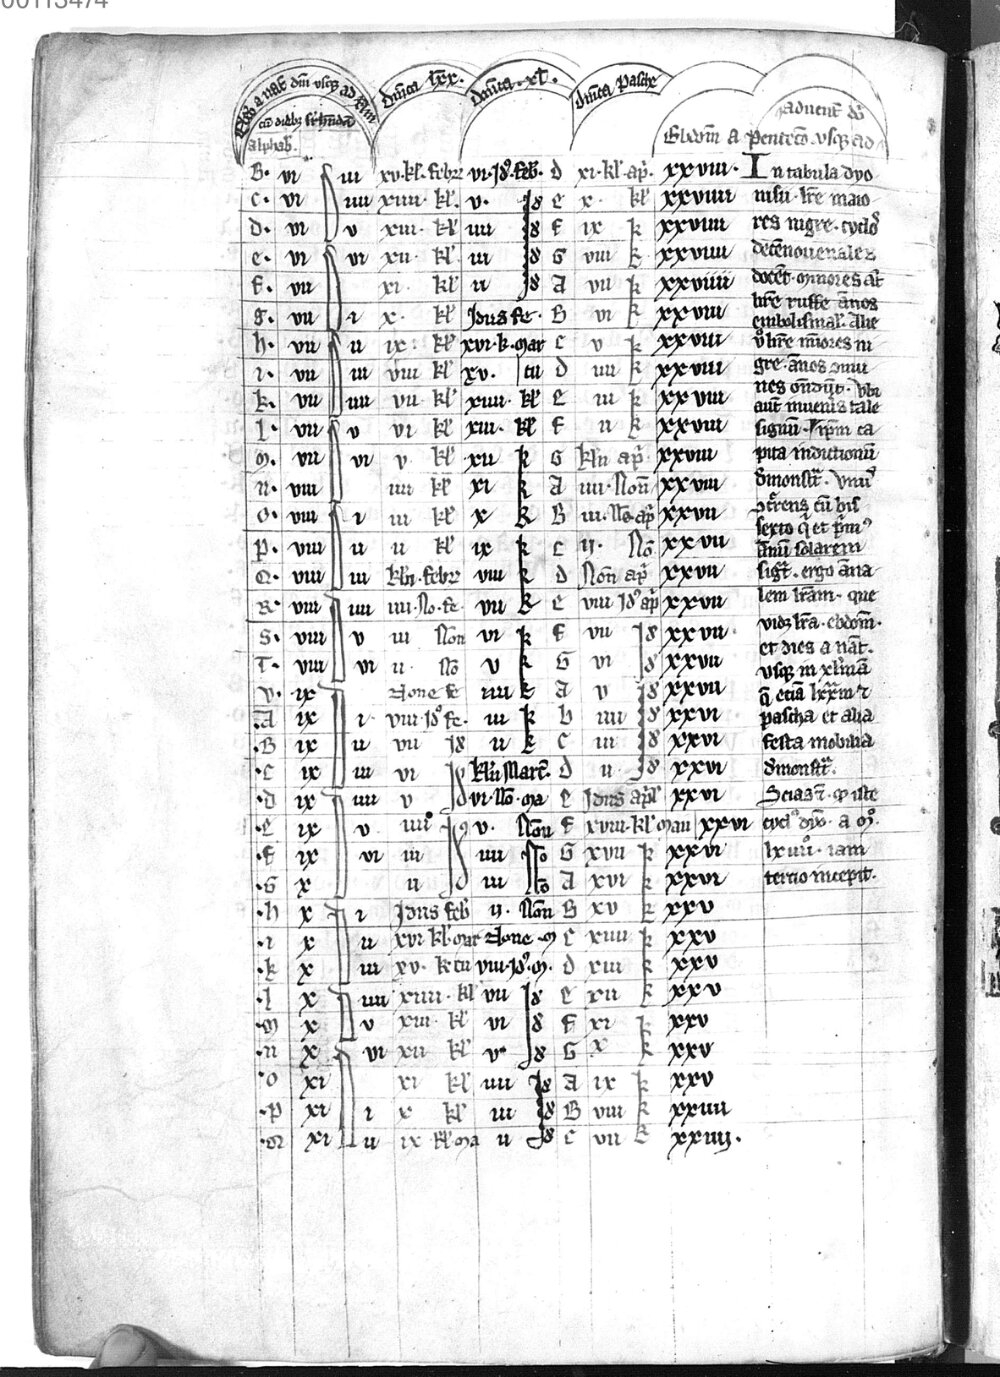 00113474
alphab.
Dnica lxx.
Dnica xl.
Dnica Pasche
Ebdom a Pentecō usq ad
aduent dō
B. vi iii xv. kl. febr vi. Jd. feb. d xi. kl. ap. xxviii.
c. vi iiii xiiii. kl. v. Jd e x. kl xxviiii
d. vi v xiii. kl iiii Jd f ix k xxviiii
e. vi vi xii. kl iii Jd G viii k xxviiii
f. vii xi. kl ii Jd A vii k xxviiii
g. vii i x. kl Idus fe. B vi k xxviii
h. vii ii ix kl xvi. k. mar c v k xxviii
i. vii iii viii kl xv. cii d iiii k xxviii
k. vii iiii vii. kl xiiii. kl e iii k xxviii
l. vii v vi kl xiii. kl f ii k xxviii
m. vii vi v kl xii k G kln ap. xxviii
n. viii iiii kl xi k A iiii. Non xxviii
o. viii i iii kl x k B iii. No. ap xxvii
p. viii ii ii kl ix k c ii. No xxvii
Q. viii iii kln. febr viii k d Non ap xxvii
R. viii iiii iiii. No. fe. vii k e viii Jd ap xxvii
S. viii v iii Non vi k f vii Jd xxvii.
T. viii vi ii. No v k G vi Jd xxvii
v. ix None fe iiii k A v Jd xxvii
A ix i. viii. Jd fe. iii k b iiii Jd xxvi
B ix ii vii Jd ii k c iii Jd xxvi
c ix iii vi Jd kln Marc. d ii. Jd xxvi
d ix iiii v Jd vi. No. ma e Idus apl xxvi
e ix v. iiii Jd v. Non f xviii. kl. maii xxvi
f ix vi iii Jd iiii No G xvii k xxvi
G x ii Jd iii No A xvi k xxvi
h x i Idus feb ii. Non B xv k xxv
i x ii xvi kl mar None m c xiiii k xxv
k x iii xv. k cii viii. Jd. m. d xiii k xxv
l x iiii xiiii. kl vii Jd e xii k xxv
m x v xiii. kl vi Jd f xi k xxv
n x vi xii kl v Jd G x k xxv
o xi xi kl iiii Jd A ix k xxv
p xi i x kl iii Jd B viii k xxiiii
xi ii ix kl ma ii Jd c vii k xxiiii.
In tabula dyo
nisii. lre maio
res nigre. cyclos
decēnouenales
docēt. minores at
lre ruffe ānos
embolismal. Alie
u lre minores ni
gre. ānos omi
nes ondūt. Ubi
aut inuenis tale
signū. ipm ca
pita indictionū
dmonstt. Unu
currens cū bis
sexto q et pm
ānū solarem
sigt. ergo āna
lem lram. que
vidz lra. ebdom.
et dies a nat.
usq in xlmā
q etiā lxxm
pascha et alia
festa mobilia
dmonstt.
Scias t. q iste
cycl dyo. a m.
lxiiii. iam
tercio incepit.